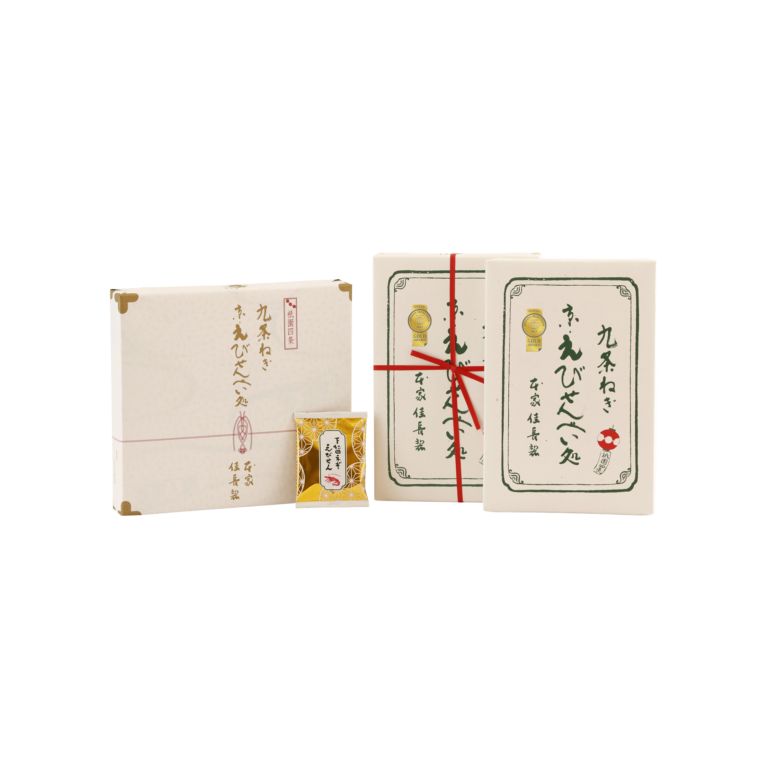 祇園四条
九条ねぎ
京・えびせんべい処
本家 佳長製
えびせん
京・えびせんべい処
本家 佳長製
九条ねぎ
京・えびせんべい処
本家 佳長製